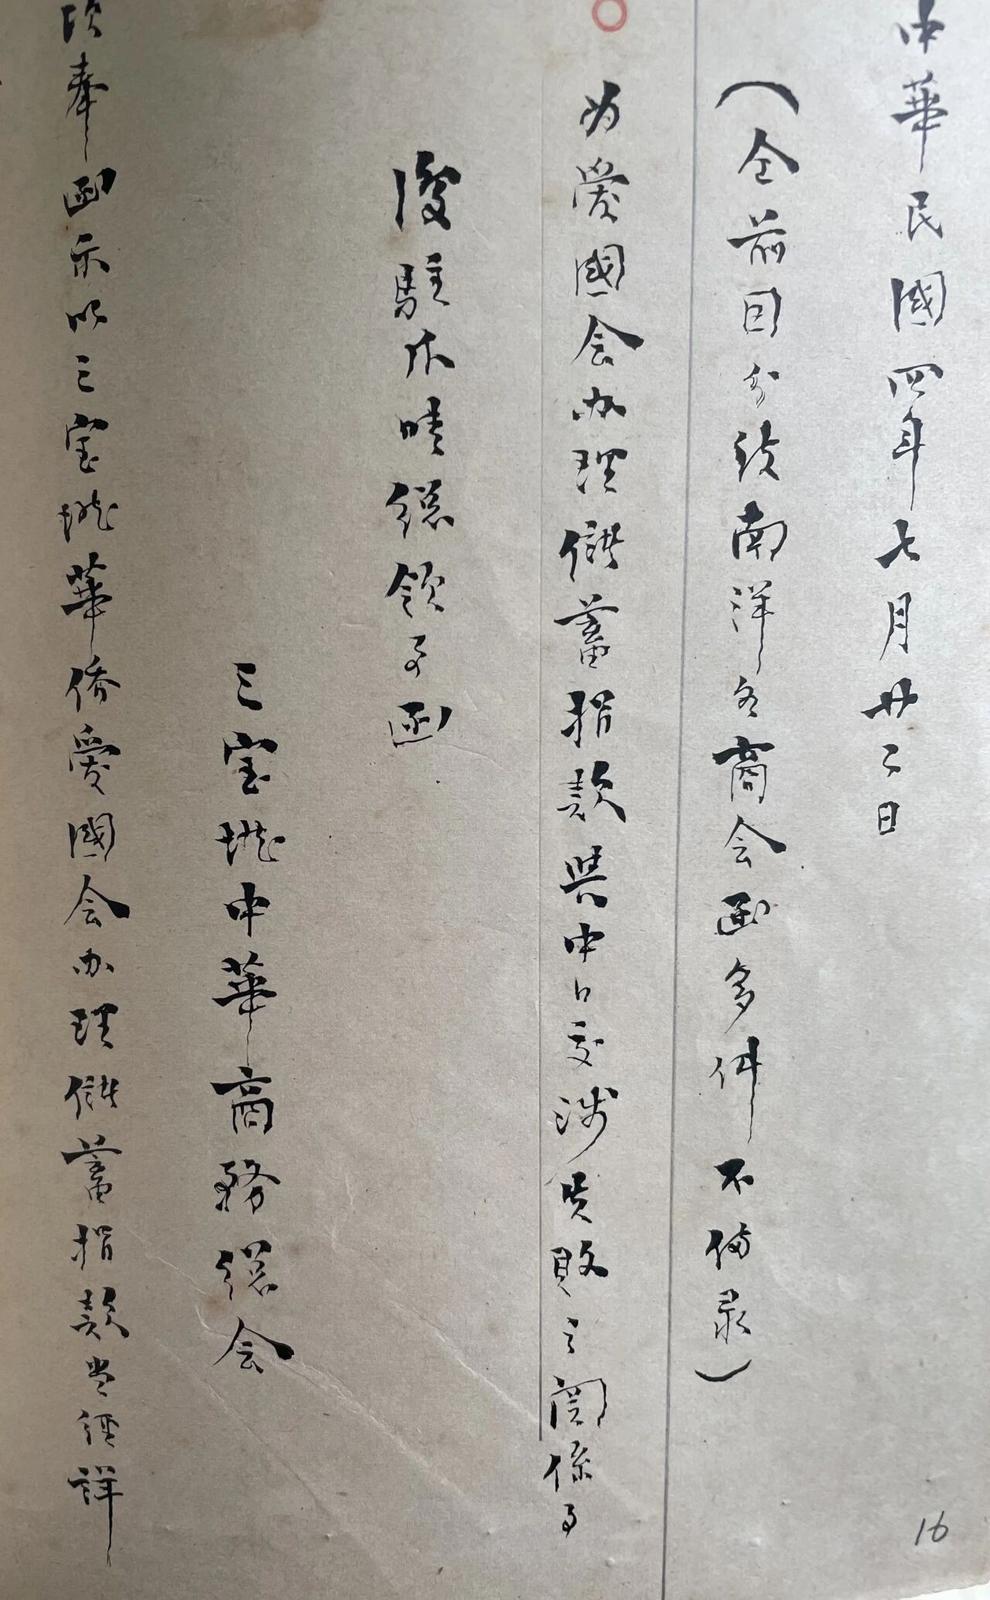 中華民國四年七月廿二日
(仝前因分致南洋各商会函多件不俻录)
为愛國会办理儲蓄捐款與中日交涉失敗之関係事
復駐爪哇總領事函
三宝垅中華商務總会
項奉函示以三宝垅華僑愛國会办理儲蓄捐款当經詳
16